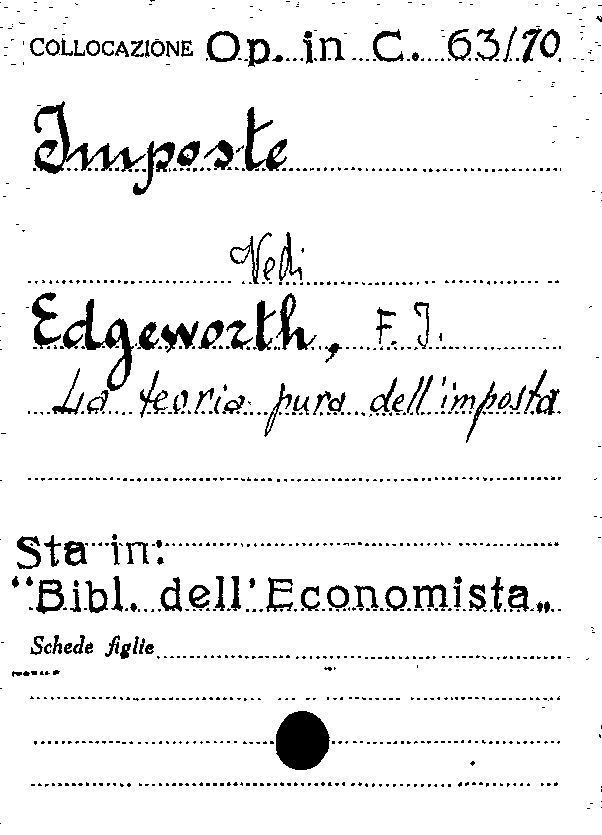 COLLOCAZIONE Op. in C. 63/70
Imposte
Vedi
Edgeworth, F. J.
La teoria pura dell'imposta
Sta in:
"Bibl. dell'Economista„
Schede figlie